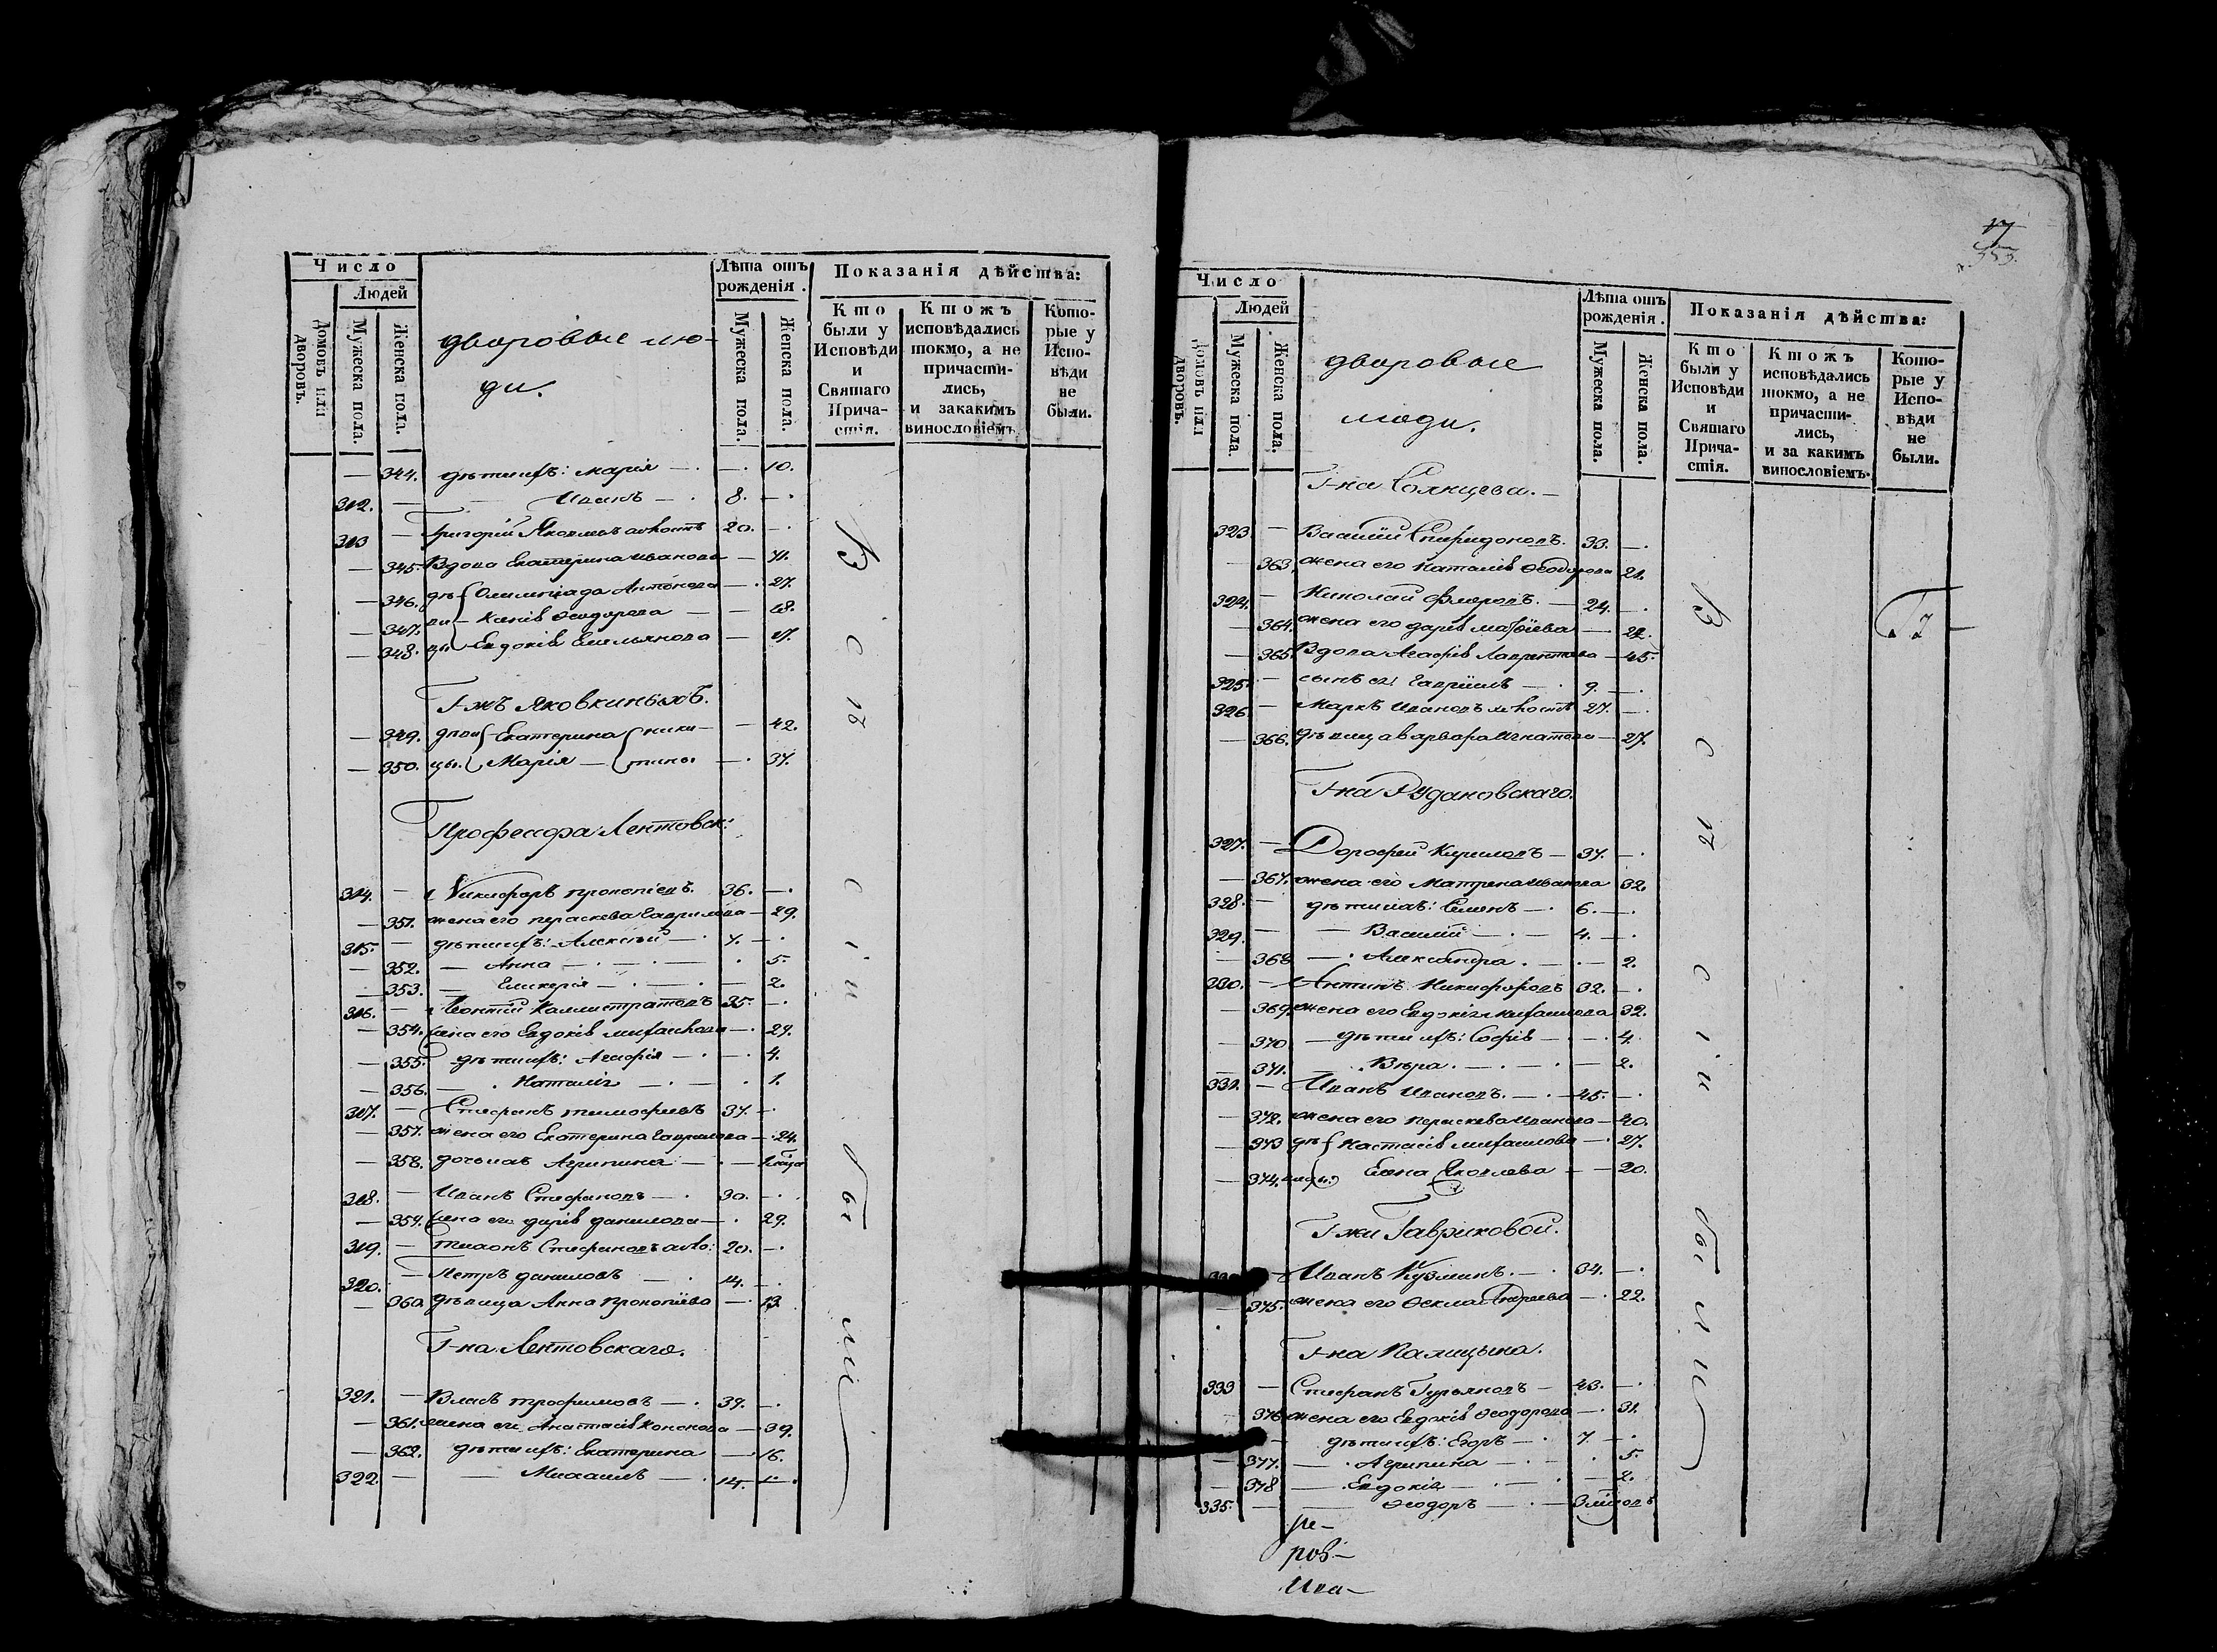 Число
Людей
Домовъ или дворовъ.
Мужеска пола.
Женска пола.
дворовые лю-
ди.
Лѣта отъ рожденія.
Мужеска пола.
Женска пола.
Показанія дѣйства:
Кто были у Исповѣди и Святаго Прича-стія.
Ктожъ исповѣдались токмо, а не причасти-лись, и закакимъ винословіемъ
Кото-рые у Испо-вѣди не были.
— 344. дѣти ихъ: Марія — . — . 10.
312. — — Иванъ — . 8. — .
313 — Григорій Яковлевъ холостъ 20. — .
— 345. Вдова Екатерина Иванова — 71.
— 346. дѣ Олимпіада Антонова — . 27.
— 347. ви Ксенія Ѳеодорова — — 18.
— 348. цы Евдокія Емельянова — 17.
Г-жъ Яковкиныхъ.
— 349. дѣви Екатерина ники- — 42.
— 350. цы. Марія — тины — . 37.
Профессора Лентовск:
314. — Никифоръ Прокопіевъ. 36. — .
— 351. жена его Параскева Гаврилова — 29.
315. — дѣти ихъ: Алексѣй — . 7. — .
— 352. — Анна — . — . — . 5.
— 353. — Гликерія — . — . — 2.
316. — Леонтій Каллистратовъ 35. — .
— 354. жена его Евдокія Михайлова — . 29.
— 355. дѣти ихъ: Агафія — . — . 4.
— 356. — . Наталія — . — . 1.
317. — Стефанъ Тимофеевъ 37. — .
— 357. жена его Екатерина Гаврилова — . 24.
— 358. дочь ихъ Агрипина — . —
318. — Иванъ Стефановъ — . 30. — .
— 359. жена его Дарія Данилова — . 29.
319. — Тихонъ Стефановъ холо: 20. — .
320. — Петръ Даниловъ — . 14. — .
— 360. дѣвица Анна Прокопіева — . 13.
Г-на Лентовскаго.
321. — Власъ Трофимовъ — . 39. — .
— 361. жена его Анастасія — 39.
— 362. дѣти ихъ: Екатерина — 16.
322. — — Михаилъ — . 14. — .
В с ѣ с і и б ы ли
17
353.
Число
Людей
Домовъ или дворовъ.
Мужеска пола.
Женска пола.
дворовые
люди.
Лѣта отъ рожденія.
Мужеска пола.
Женска пола.
Показанія дѣйства:
Кто были у Исповѣди и Святаго Прича-стія.
Ктожъ исповѣдались токмо, а не причасти-лись, и за какимъ винословіемъ.
Кото-рые у Испо-вѣди не были.
Г-на Солнцева. —
323. — Василій Спиридоновъ. 33. — .
— 363. жена его Наталія Ѳеодорова 21.
324. — Николай Флоровъ. — 24. — .
— 364. жена его Дарія Матѳіева — 22.
— 365. Вдова Агафія Лаврентіева — 45.
325. — сынъ ея Гавріилъ — . 9. — .
326. — Маркъ Ивановъ холостъ 27. — .
— 366. дѣвица Варвара Игнатова — 27.
Г-на Рудановскаго.
327. — Дорофей Кириловъ — 37. — .
— 367. жена его Матрена Иванова 32.
328. — дѣти ихъ: Семенъ — . 6. — .
329. — — Василій — . — 4. — .
— 368 — . Александра . — . — 2.
330. — Антипъ Никифоровъ 32. — .
— 369. жена его Евдокія Михайлова 32.
— 370 — дѣти ихъ: Софія — . — . 4.
— 371. — . Вѣра . — . — . — 2.
331. — Иванъ Ивановъ. — . 45. — .
— 372. жена его Параскева Иванова — 40.
— 373 дѣ Настасія Михайлова — . 27.
— 374. вицы Елена Яковлева — — 20.
Г-жи Гавриковой.
— Иванъ Кузминъ. — . 34. — .
— 375. жена его Ѳекла Андреева — . 22.
Г-на Палицына.
333 — Стефанъ Гурьяновъ — 43. — .
— 376 жена его Евдокія Ѳеодорова — . 31.
— дѣти ихъ: Егоръ — . 7. — .
— 377. — . Агрипина — . — . 5.
— 378 — . Евдокія — . — . — 2.
335. — — Ѳеодоръ — . —
В с ѣ с і и б ы л и
ре-
ров-
Ива-